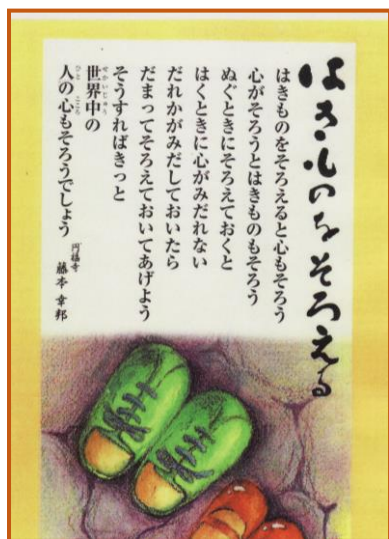 はきものをそろえる
はきものをそろえると心もそろう
心がそろうとはきものもそろう
ぬぐときにそろえておくと
はくときに心がみだれない
だれかがみだしておいたら
だまってそろえておいてあげよう
そうすればきっと
世界中の
人の心もそろうでしょう
円福寺
藤本 幸邦